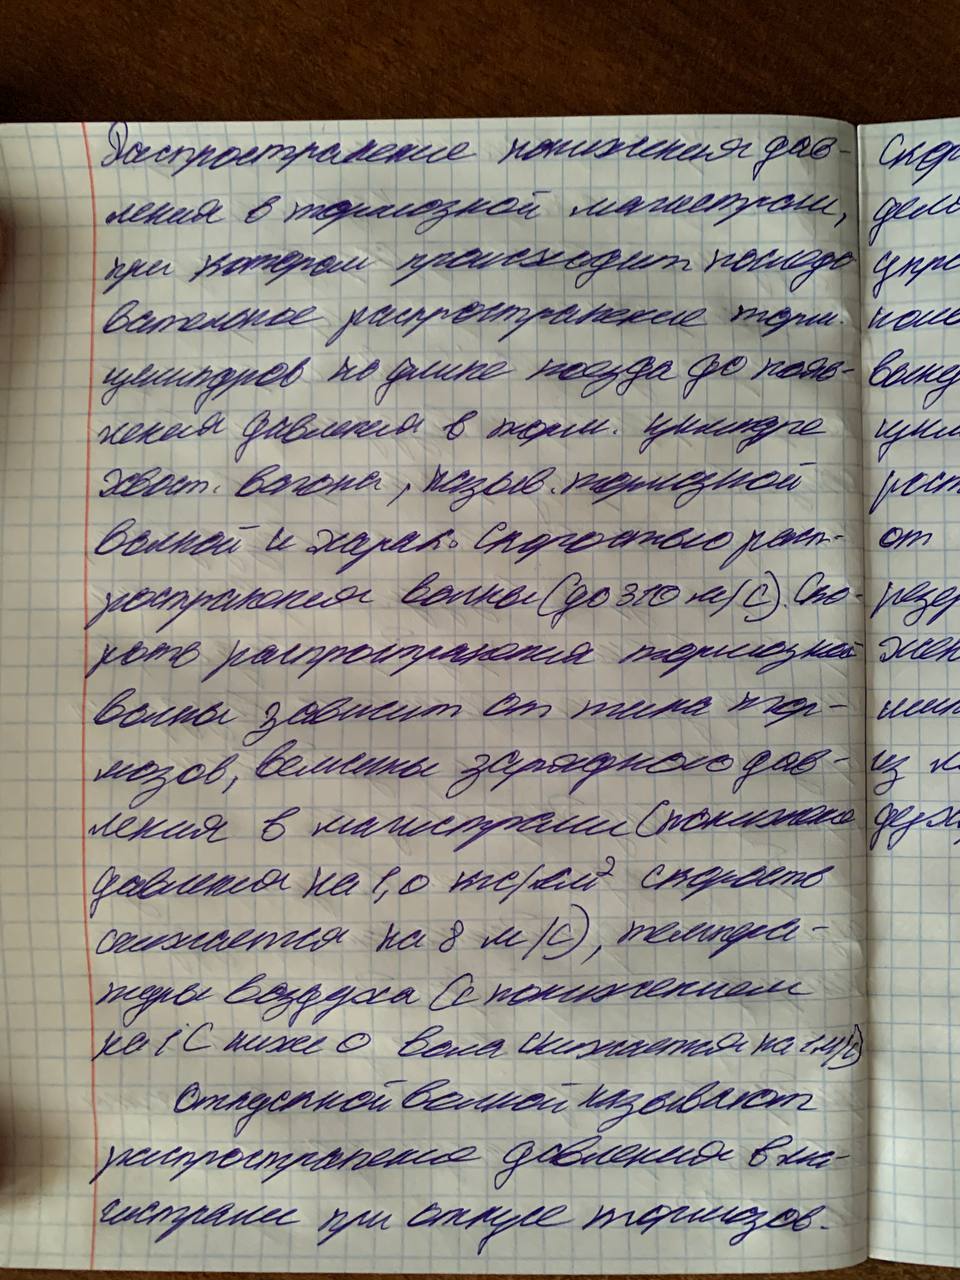 Распространение понижения дав-
ления в тормозной магистрали,
при котором происходит последо
вательное распространение торм.
цилиндров по длине поезда до появ-
ления давления в торм. цилиндре
хвост. вагона, назыв. тормозной
волной и харак. скоростью расп-
ространения волны (до 300 м/с). Ско-
рость распространения тормозной
волны зависит от типа тор-
мозов, величины зарядного дав-
ления в магистрали (понижение
давления на 1,0 кгс/см² скорость
снижается на 8 м/с), темпера-
туры воздуха (с понижением
на 1°С ниже 0 волна снижается на 1 м/с)
Отпускной волной называют
распространение давления в ма-
гистрали при отпуске тормозов.
Скор
дел
упр
пол
вы
цил
рост
от
резер
жен
мин
из м
держ